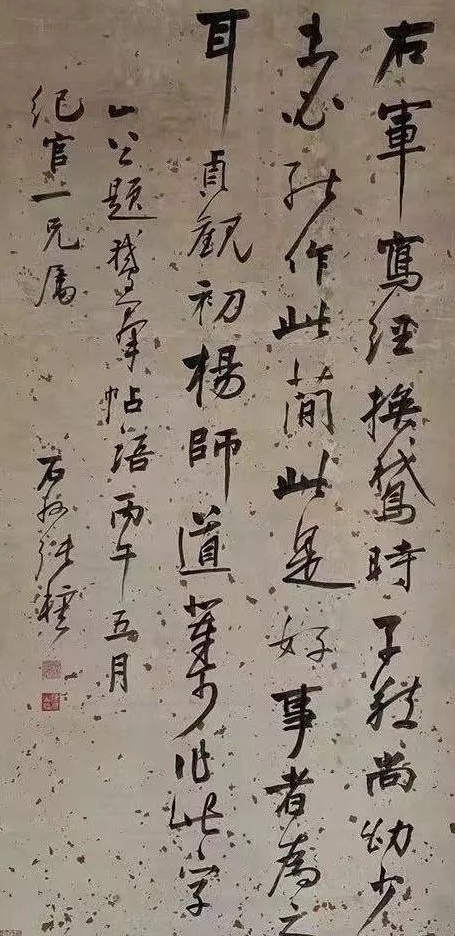 右軍寫經換鵞時子敬尚幼少
未必能作此簡此是好事者為之
耳貞觀初楊師道輩作此字
山谷題鵞羣帖語丙午五月
紀官一兄屬 石州張穆